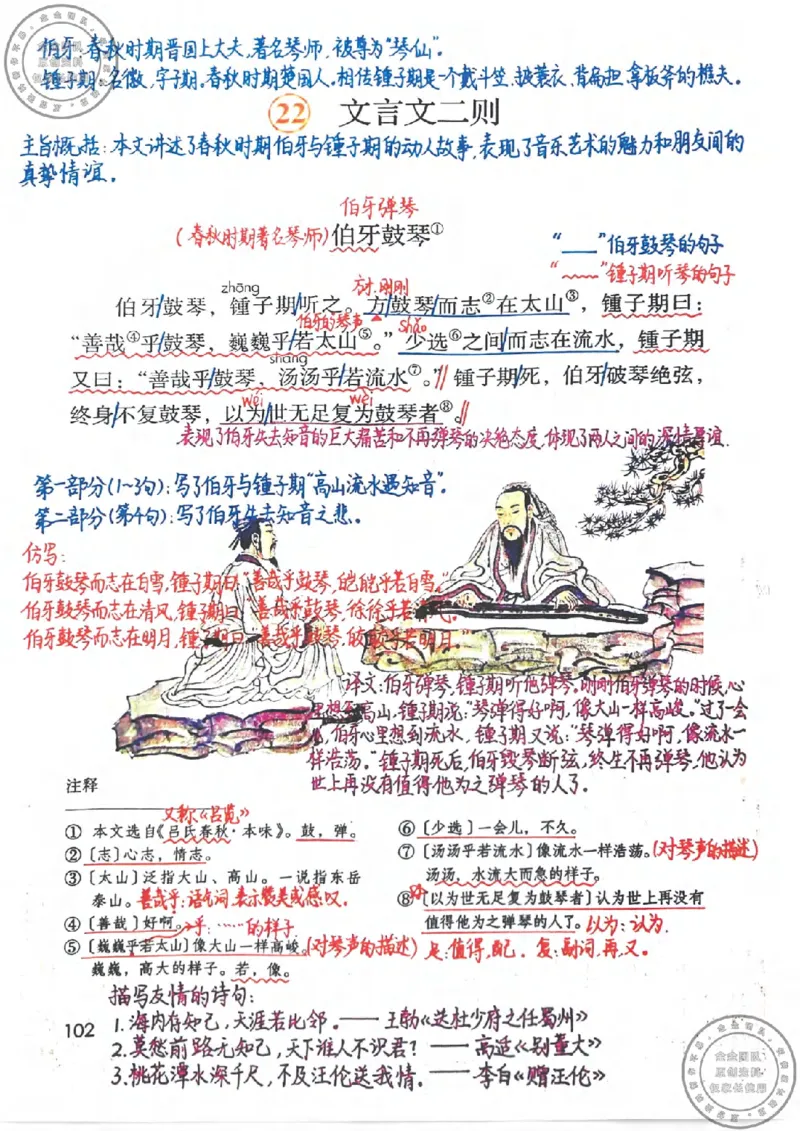 伯牙:春秋时期晋国上大夫,著名琴师,被尊为“琴仙”。
锺子期:名徽,字子期。春秋时期楚国人。相传锺子期是一个戴斗笠、披蓑衣、背扁担、拿板斧的樵夫。
22 文言文二则
主旨概括:本文讲述了春秋时期伯牙与锺子期的动人故事,表现了音乐艺术的魅力和朋友间的
真挚情谊。
伯牙弹琴
(春秋时期著名琴师)伯牙鼓琴①
“___”伯牙鼓琴的句子
“﹏﹏”锺子期听琴的句子
zhōng
方才,刚刚
伯牙/鼓琴,锺子期/听之。方/鼓琴/而志②在太山③,锺子期曰:
伯牙的琴声 shǎo
“善哉④乎/鼓琴,巍巍乎/若太山⑤。”少选⑥之间/而志在流水,锺子期
shāng
又曰:“善哉乎/鼓琴,汤汤乎/若流水⑦。”//锺子期/死,伯牙/破琴绝弦,
wéi wèi
终身/不复鼓琴,以为/世无足复为鼓琴者⑧。//
表现了伯牙失去知音的巨大痛苦和不再弹琴的决绝态度,体现了两人之间的深情厚谊.
第一部分(1~3句):写了伯牙与锺子期“高山流水遇知音”。
第二部分(第4句):写了伯牙失去知音之悲。
仿写:
伯牙鼓琴而志在白雪,锺子期曰“善哉乎鼓琴,皑皑乎若白雪。”
伯牙鼓琴而志在清风,锺子期曰“善哉乎鼓琴,徐徐乎若清风。”
伯牙鼓琴而志在明月,锺子期曰“善哉乎鼓琴,皎皎乎若明月。”
译文:伯牙弹琴,锺子期听他弹琴。刚刚伯牙弹琴的时候,心
里想到高山,锺子期说:“琴弹得好啊,像大山一样高峻。”过了一会
儿,伯牙心里想到流水,锺子期又说:“琴弹得好啊,像流水一
样浩荡。”锺子期死后,伯牙毁琴断弦,终生不再弹琴,他认为
世上再没有值得他为之弹琴的人了。
注释
又称《吕览》
① 本文选自《吕氏春秋·本味》。鼓,弹。
② 〔志〕心志,情志。
③ 〔太山〕泛指大山、高山。一说指东岳
泰山。善哉乎:语气词,表示赞美或感叹.
④ 〔善哉〕好啊。乎:……的样子
⑤ 〔巍巍乎若太山〕像大山一样高峻。(对琴声的描述)
巍巍,高大的样子。若,像。
⑥ 〔少选〕一会儿,不久。
⑦ 〔汤汤乎若流水〕像流水一样浩荡。(对琴声的描述)
汤汤,水流大而急的样子。
⑧ 〔以为世无足复为鼓琴者〕认为世上再没有
值得他为之弹琴的人了。以为:认为.
足:值得,配. 复:副词,再,又.
描写友情的诗句:
1.海内存知己,天涯若比邻。——王勃《送杜少府之任蜀州》
102
2.莫愁前路无知己,天下谁人不识君?——高适《别董大》
3.桃花潭水深千尺,不及汪伦送我情。——李白《赠汪伦》